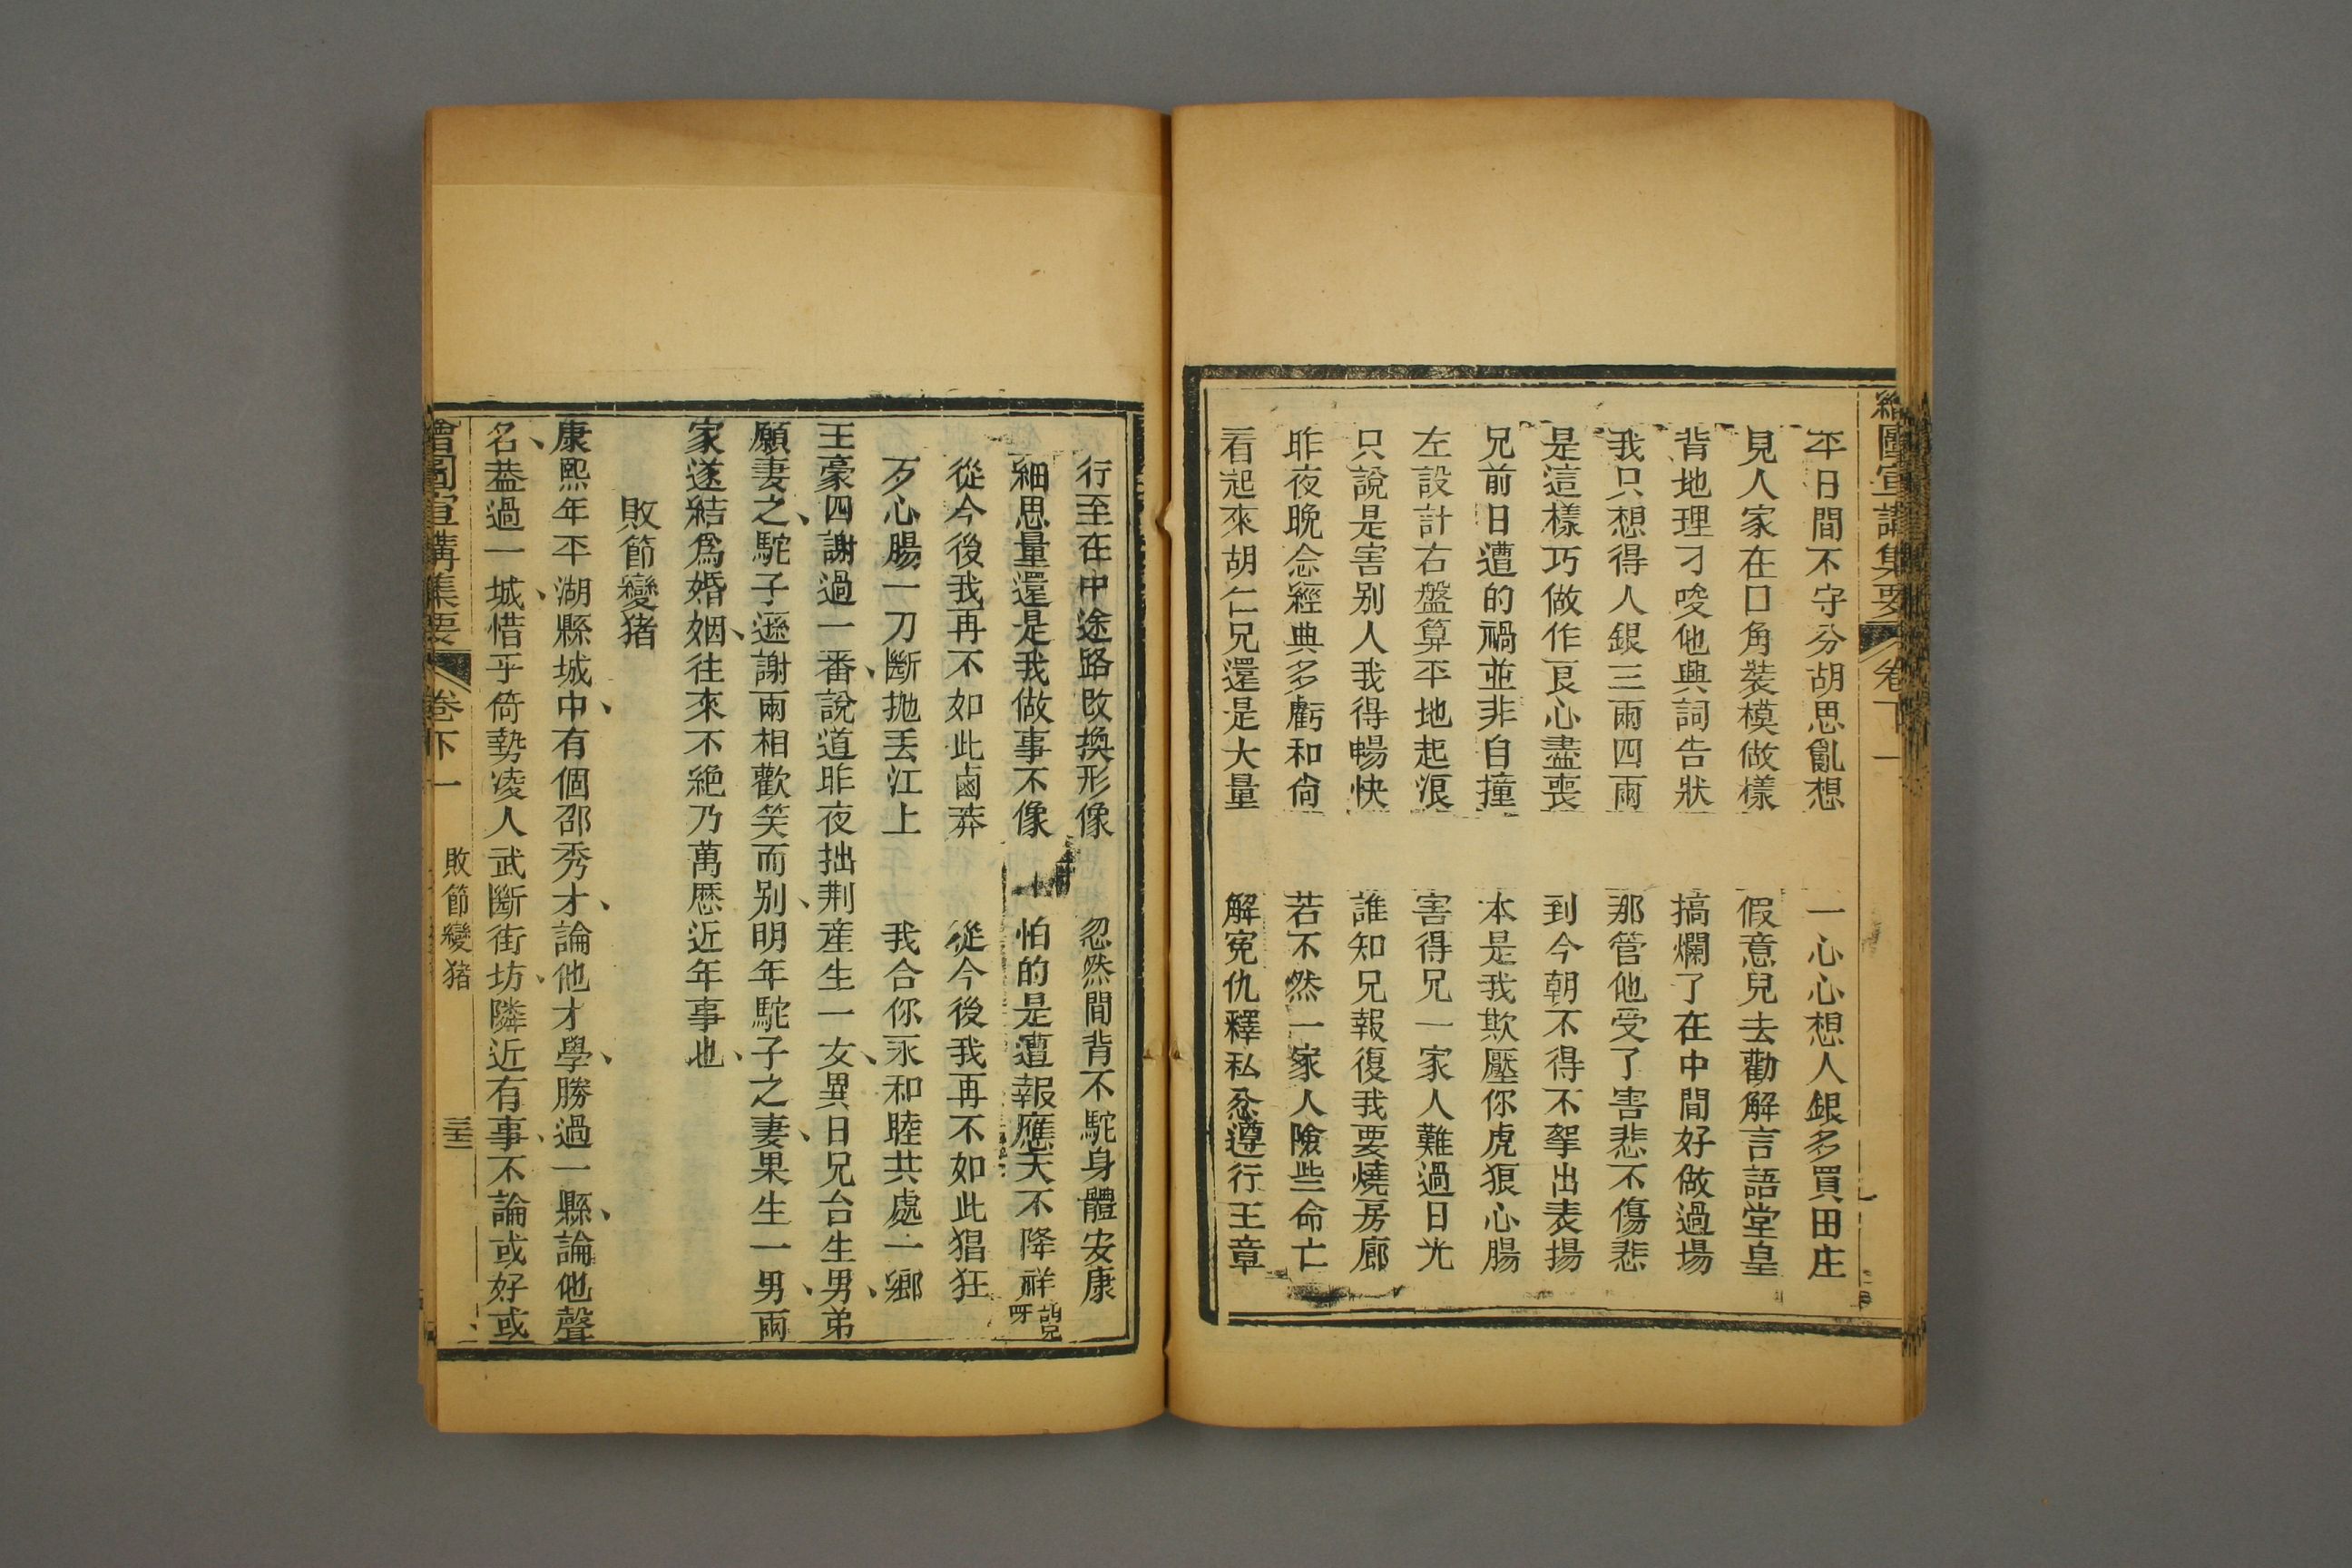 繪圖宣講集要 卷下一
平日間不守分胡思亂想 一心心想人銀多買田庄
見人家在口角裝模做樣 假意兒去勸解言語堂皇
背地理刁唆他與詞告狀 搞爛了在中間好做過場
我只想得人銀三兩四兩 那管他受了害悲不傷悲
是這樣巧做作良心盡喪 到今朝不得不拏出表揚
兄前日遭的禍並非自撞 本是我欺壓你虎狼心腸
左設計右盤算平地起浪 害得兄一家人難過日光
只說是害别人我得暢快 誰知兄報復我要燒房廊
昨夜晚念經典多虧和尙 若不然一家人險些命亡
看起來胡仁兄還是大量 解寃仇釋私忿遵行王章
行至在中途路改換形像 忽然間背不駝身體安康
細思量還是我做事不像 怕的是遭報應天不降祥 呀
從今後我再不如此鹵莽 從今後我再不如此猖狂
歹心腸一刀斷抛丢江上 我合你永和睦共處一鄉
王豪四謝過一番說道昨夜拙荆産生一女異日兄台生男弟
願妻之駝子遜謝兩相歡笑而别明年駝子之妻果生一男兩
家遂結爲婚姻往來不絶乃萬厯近年事也
敗節變猪
康熙年平湖縣城中有個邵秀才論他才學勝過一縣論他聲
名葢過一城惜乎倚勢凌人武斷街坊隣近有事不論或好或
繪圖宣講集要 卷下一 敗節變猪